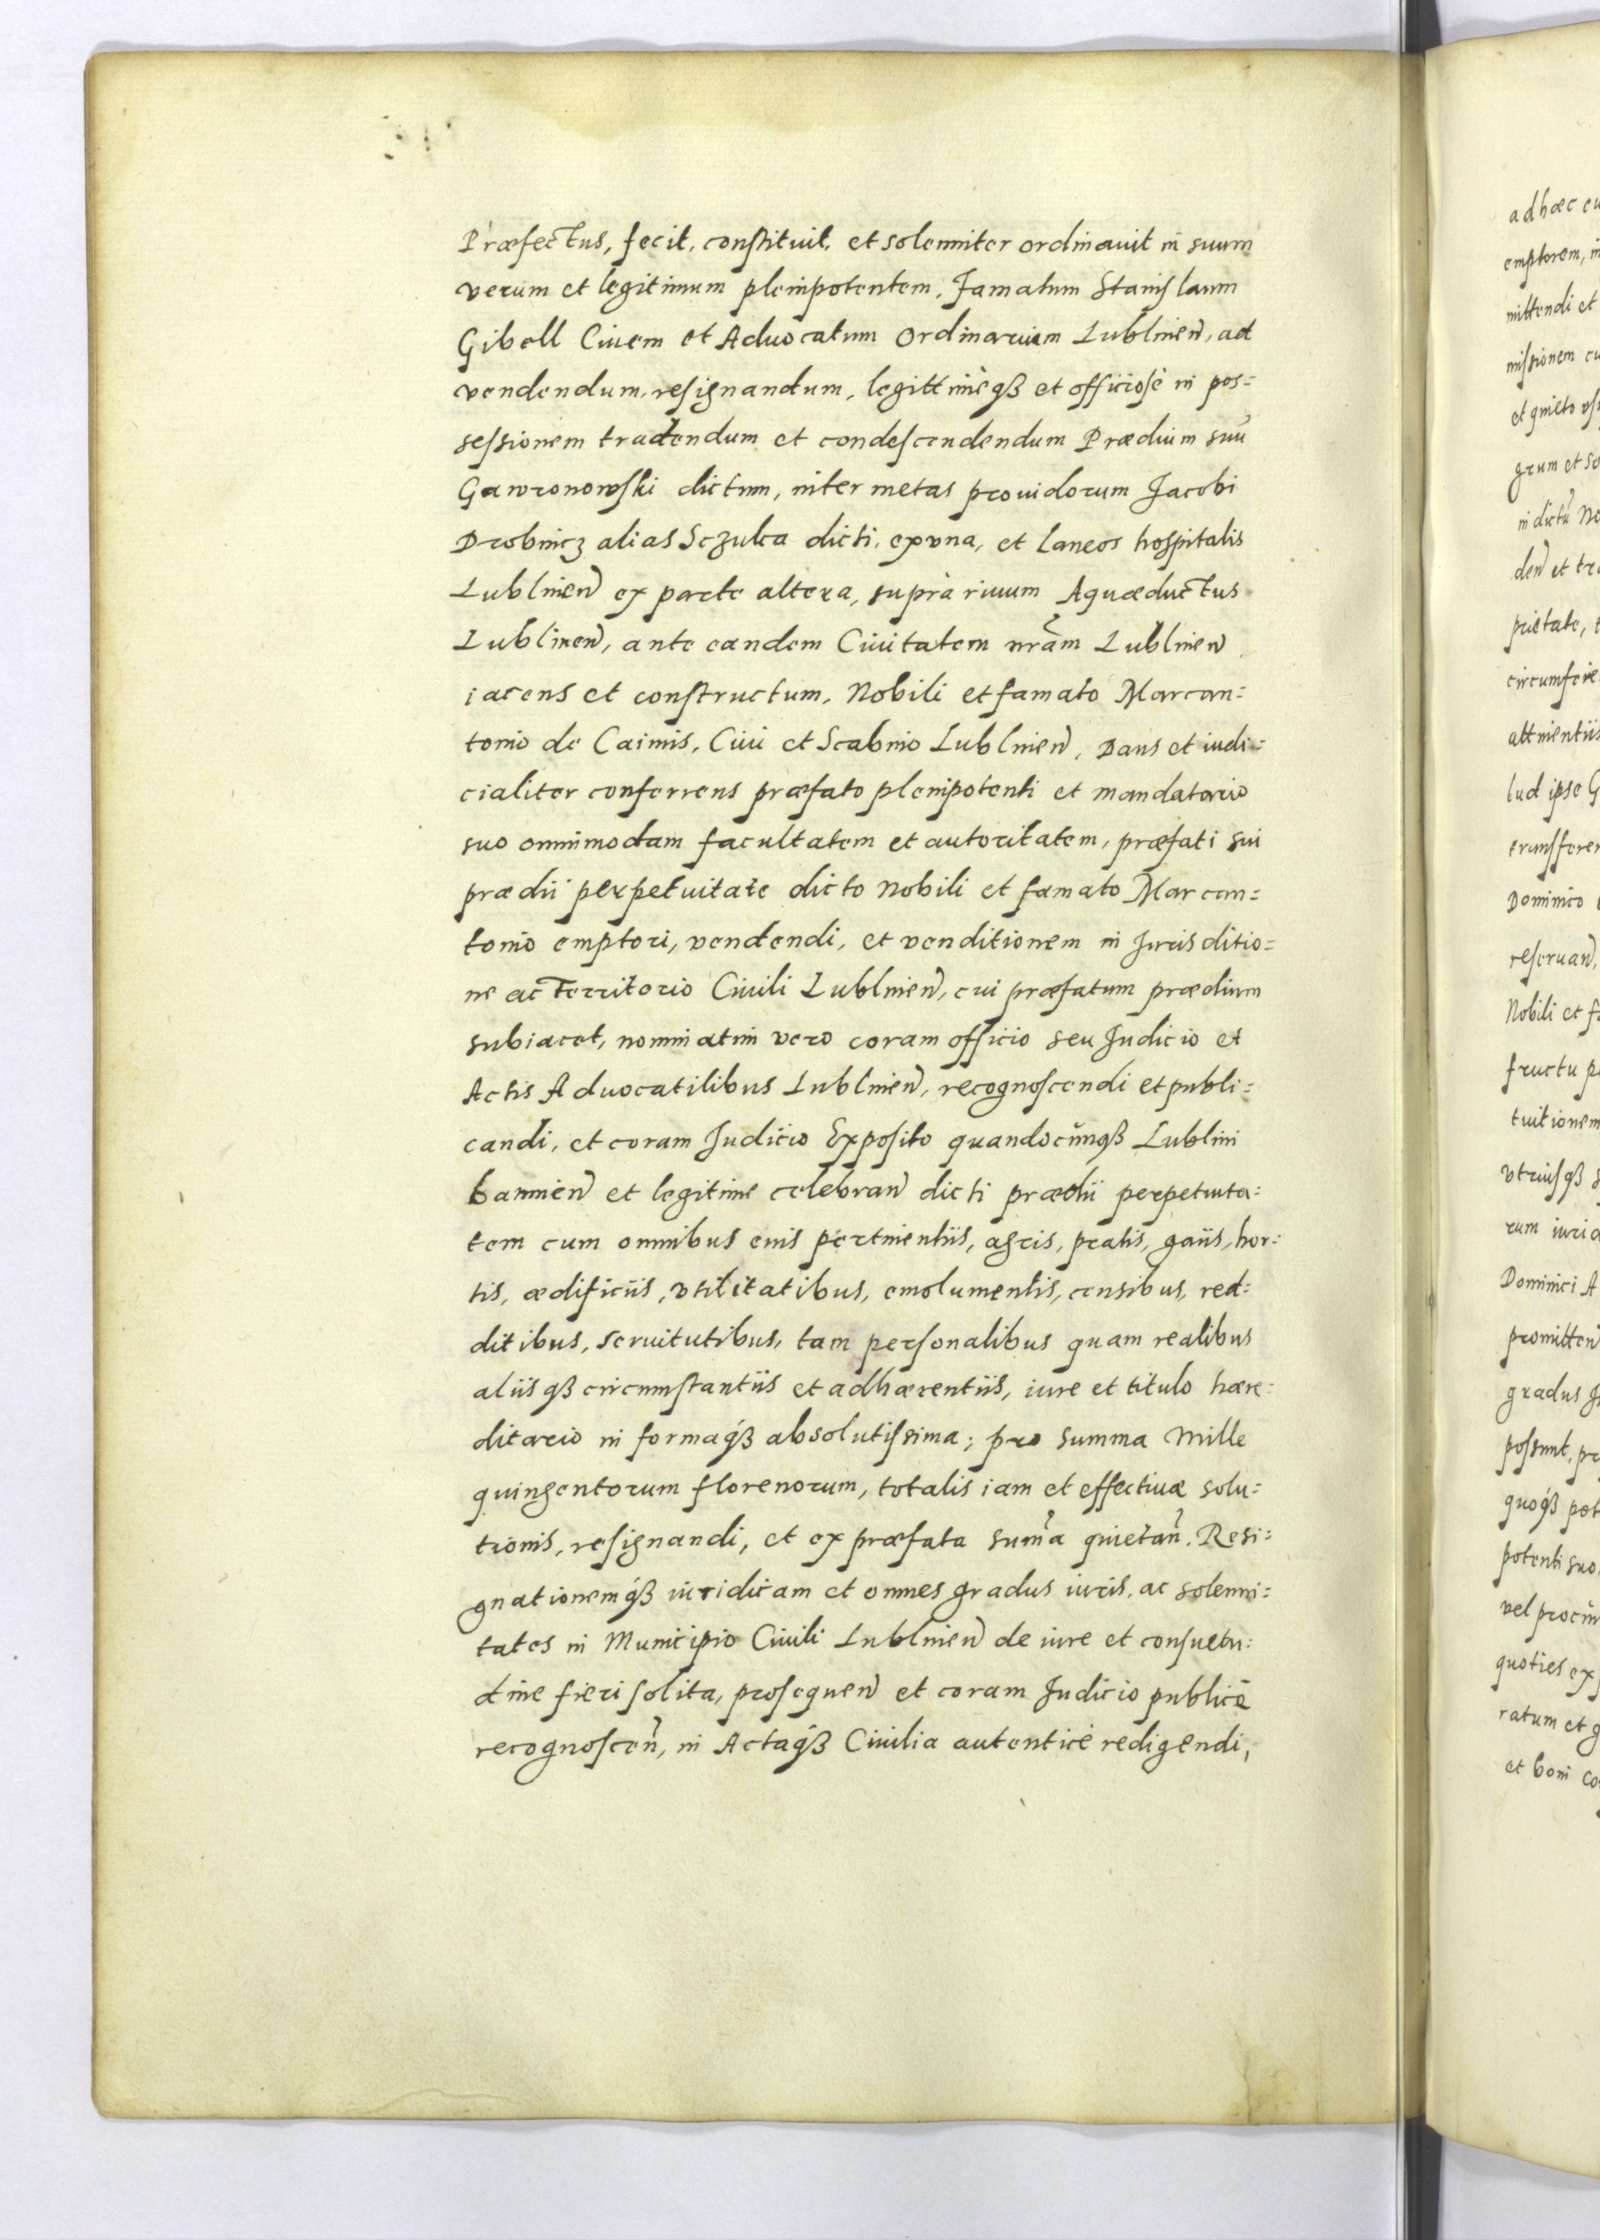 Præfectus, fecit, constituit, et solenniter ordinauit in suum
verum et legitimum plenipotentem, Famatum Stanislaum
Gibell Ciuem et Aduocatum Ordinarium Lublineñ, ad
vendendum, resignandum, legittimèqß et officiosè in pos=
sessionem tradendum et condescendendum Prædium suũ
Gawronowski dictum, inter metas prouidorum Jacobi
Drobnicz alias Sczulca dicti, ex vna, et laneos hospitalis
Lublineñ ex parte altera, suprà riuum Aquæductus
Lublineñ, ante eandem Ciuitatem nr̃am Lublineñ
iacens et constructum, Nobili et famato Marcan=
tonio de Caimis, Ciui et Scabino Lublineñ, Dans et iudi=
cialiter conferrens præfato plenipotenti et mandatario
suo omnimodam facultatem et autoritatem, præfati sui
prædii perpetuitate dicto Nobili et famato Marcan=
tonio emptori, vendendi, et venditionem in Jurisditio=
ne ac Territorio Ciuili Lublineñ, cui præfatum prædium
subiacet, nominatim vero coram officio seu Judicio et
Actis Aduocatilibus Lublineñ, recognoscendi et publi=
candi, et coram Judicio Exposito quandocũnqß Lublini
bannieñ et legitime celebrañ dicti prædii perpetuita=
tem cum omnibus eius pertinentiis, agris, pratis, gaiis, hor=
tis, ædificiis, vtilitatibus, emolumentis, censibus, red=
ditibus, seruitutibus, tam personalibus quam realibus
aliisqß circumstantiis et adhærentiis, iure et titulo hære=
ditario in formaqß absolutissima; pro summa Mille
quingentorum florenorum, totalis iam et effectiuæ solu=
tionis, resignandi, et ex præfata sum̃a quietañ. Resi=
gnationemqß iuridicam et omnes gradus iuris, ac solenni=
tates in Municipio Ciuili Lublineñ de iure et consuetu=
dine fieri solita, prosequeñ et coram Judicio publicè
recognosceñ, in Actaqß Ciuilia autenticè redigendi,
adhæc
emptorem,
mittendi et
missionem
et quieto
grum et
in dictũ
deñ et
prietate,
attinentiis
lud ipse
Dominico
reseruañ,
Nobili et
fructu
tuitionem
vtriusqß
rum
Dominici
promitteñ
gradus
possunt,
quoqß
potenti suo
vel
quoties ex
ratum et
et boni